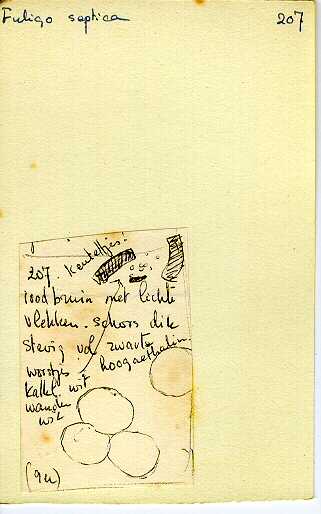 Fuligo septica 207
207. Keuteltjes!
roodbruin met lichte
vlekken. schors dik
stevig vol zwarte
worstjes
kalk. wit
wanden
wit
(9u)